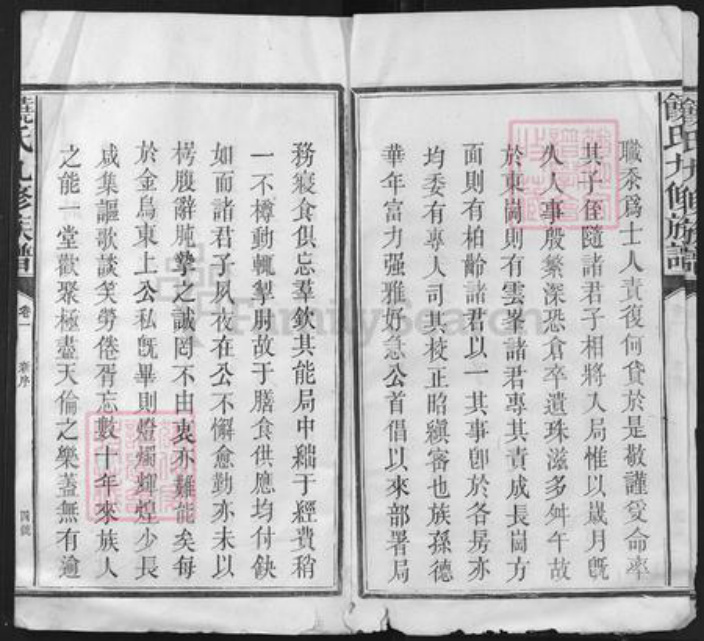 饒氏九修族譜
職忝爲士人責復何貸於是敬謹受命率
其子侄隨諸君子相將入局惟以歲月旣
久人事殷繁深恐倉卒遺珠滋多舛午故
於東崗則有雲峯諸君專其責成長崗方
面則有柏齡諸君以一其事卽於各房亦
均委有專人司其校正昭縝審也族孫德
華年富力强雅好急公首倡以來部署局
務寢食俱忘羣欽其能局中絀于經費稍
一不樽動輒掣肘故于膳食供應均付缺
如而諸君子夙夜在公不懈愈勤亦未以
枵腹辭肫摯之誠罔不由衷亦難能矣每
於金烏東上公私旣畢則燈燭輝煌少長
咸集謳歌談笑勞倦胥忘數十年來族人
之能一堂歡聚極盡天倫之樂蓋無有逾
饒氏九修族譜
卷一
序
四號
FamilySearch